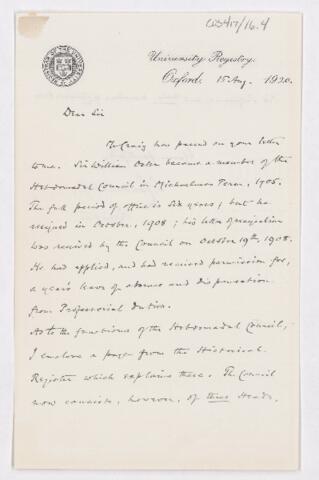 CUS417/16.4
University Registry,
Oxford, 15 Aug. 1920.
Dear Sir
Mr Craig has passed on your letter
to me. Sir William Osler became a member of the
Hebdomadal Council in Michaelmas Term, 1905.
The full period of office is six years; but he
resigned in October, 1908; his letter of resignation
was received by the Council on October 19th, 1908.
He had applied, and had received permission for,
a year's leave of absence and dispensation
from Professorial duties.
As to the functions of the Hebdomadal Council,
I enclose a page from the Historical
Register which explains these. The Council
now consists, however, of three Heads,